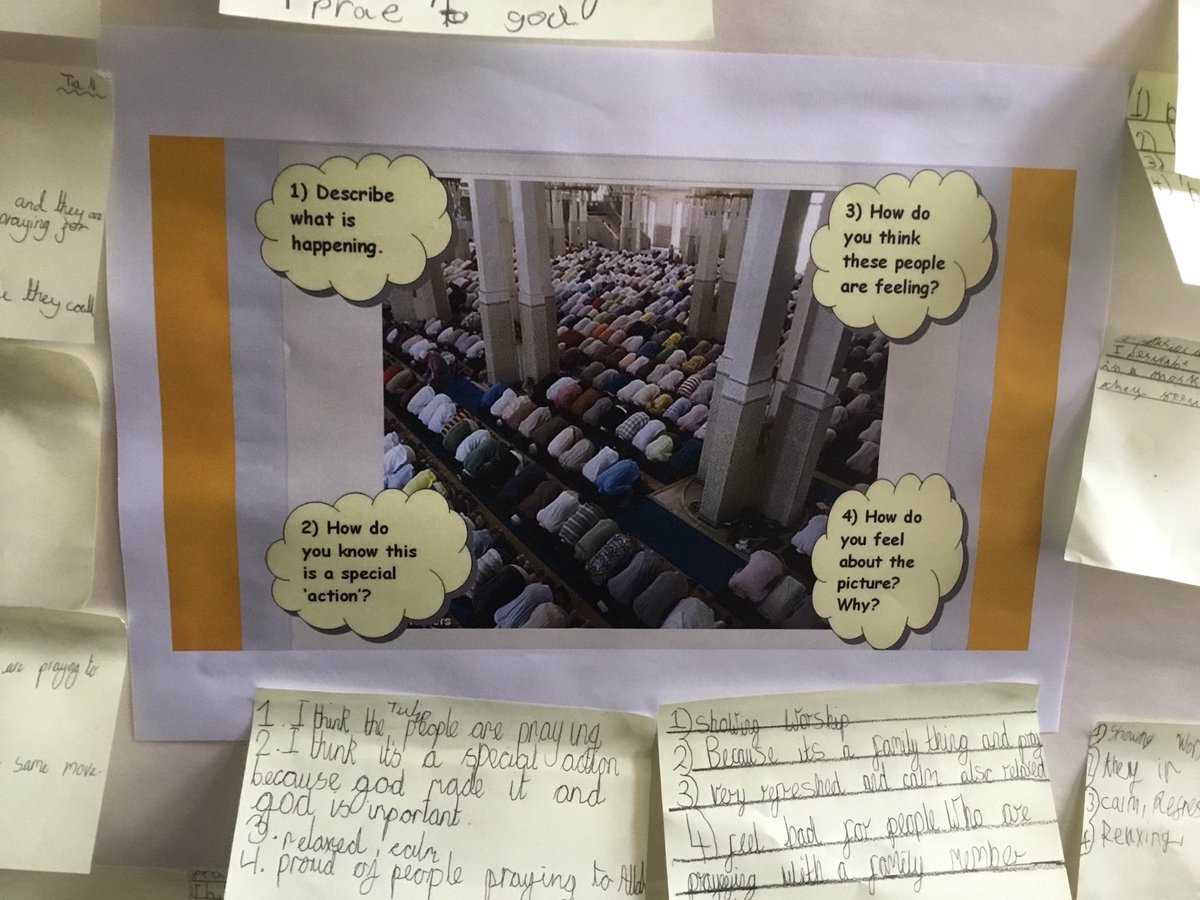 I prae to god
Tia N
and they are
praying for
they could
1) Describe
what is
happening.
2) How do
you know this
is a special
'action'?
3) How do
you think
these people
are feeling?
4) How do
you feel
about the
picture?
Why?
1)
2)
3)
4)
in a
they
are praying to
same move.
1. I think the people are praying
2. I think it's a special action
because god made it and
god is inportant.
3. relaxed, calm
4. proud of people praying to Allah
1) showing Worship
2) Because its a family thing and pray
3) very refreshed and calm also relaxed
4) feel bad for people who are
praying with a family member
1) Showing Wor
2) they in
3) calm, Refres
4) Relaxing,